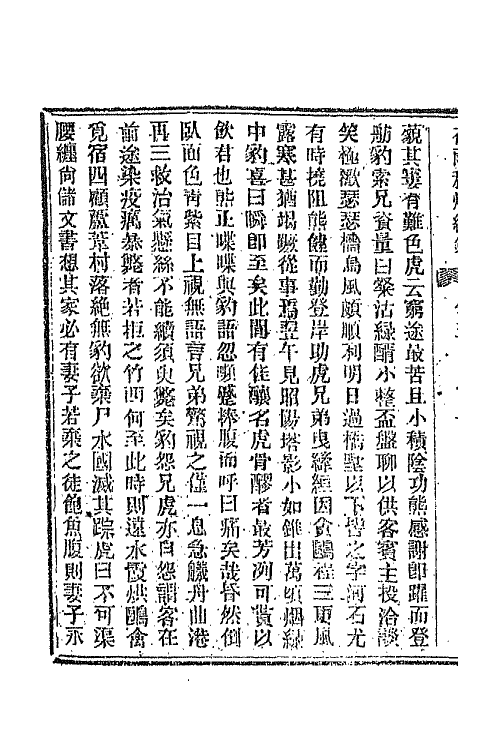 藐其妻有難色虎云窮途最苦且小積陰功熊感謝即躍而登
舫豹索兄資量曰槳沽綠醑小整盃盤聊以供客賓主投洽談
笑極歡瑟瑟檣烏風頗順利明日過橋墅以下皆之字河石尤
有時撓阻熊健而勤登岸助虎兄弟曳縴緪因貪鷗程三更風
露寒甚猶竭蹶從事焉翌午見昭陽塔影小如錐出萬頃烟綠
中豹喜曰瞬即至矣此間有佳釀名虎骨醪者最芳冽可貰以
飲君也熊正喋喋與豹語忽顰蹙捧腹而呼曰痛矣哉昏然倒
臥面色青紫目上視無語言兄弟驚視之僅一息急艤舟曲港
再三救治氣懸絲不能續須臾斃矣豹怨兄虎亦自怨謂客在
前途染疫癘暴斃者若拒之竹西何至此時則遠水霞烘鷗禽
覓宿四顧蘆葦村落絕無豹欲棄尸水國滅其踪虎曰不可渠
腰纏尙儲文書想其家必有妻子若棄之徒飽魚腹則妻子永